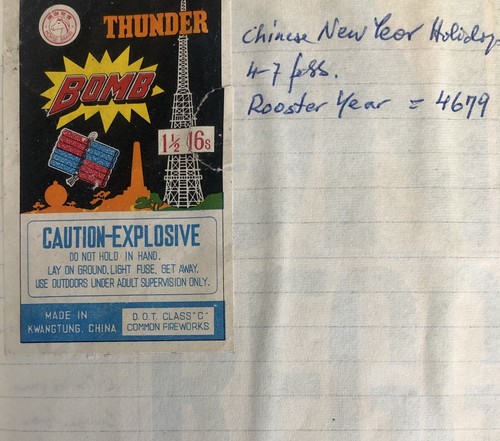 THUNDER
BOMB
1½ 16s
CAUTION-EXPLOSIVE
DO NOT HOLD IN HAND.
LAY ON GROUND. LIGHT FUSE, GET AWAY.
USE OUTDOORS UNDER ADULT SUPERVISION ONLY.
MADE IN
KWANGTUNG, CHINA
D.O.T. CLASS "C"
COMMON FIREWORKS
Chinese New Year Holiday
4-7 febb.
Rooster Year = 4679